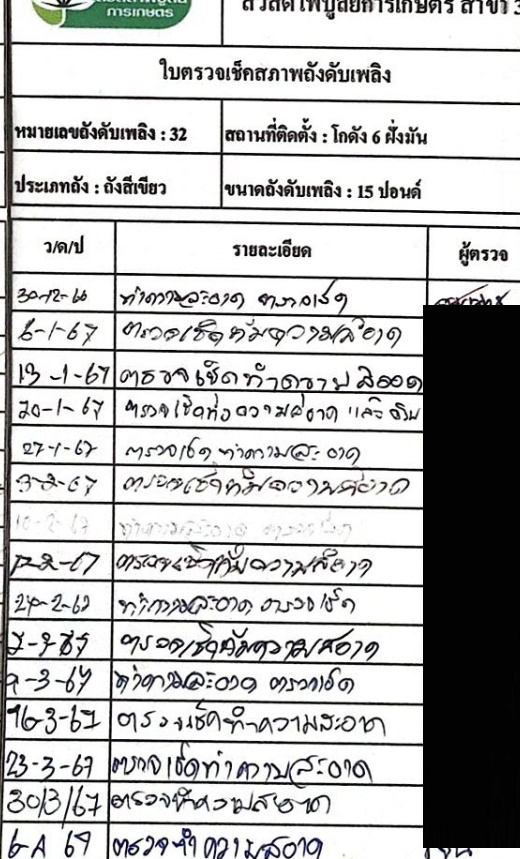 การเกษตร
สวัสดิ์ไพบูลย์การเกษตร สาขา 3
ใบตรวจเช็คสภาพถังดับเพลิง
หมายเลขถังดับเพลิง : 32 สถานที่ติดตั้ง : โกดัง 6 ฝั่งมัน
ประเภทถัง : ถังสีเขียว ขนาดถังดับเพลิง : 15 ปอนด์
ว/ด/ป รายละเอียด ผู้ตรวจ
30-12-66 ทำความสะอาด ตรวจเช็ค
6-1-67 ตรวจเช็คทำความสะอาด
13-1-67 ตรวจเช็คทำความสะอาด
20-1-67 ตรวจเช็คทำความสะอาด และ
27-1-67 ตรวจเช็ค ทำความสะอาด
3-2-67 ตรวจเช็คทำความสะอาด
10-2-67 ทำความสะอาด ตรวจเช็ค
17-2-67 ตรวจเช็คทำความสะอาด
24-2-67 ทำความสะอาด ตรวจเช็ค
ตรวจเช็คทำความสะอาด
9-3-67 ทำความสะอาด ตรวจเช็ค
16-3-67 ตรวจเช็คทำความสะอาด
23-3-67 ตรวจเช็คทำความสะอาด
30/3/67 ตรวจทำความสะอาด
67 ตรวจทำความสะอาด